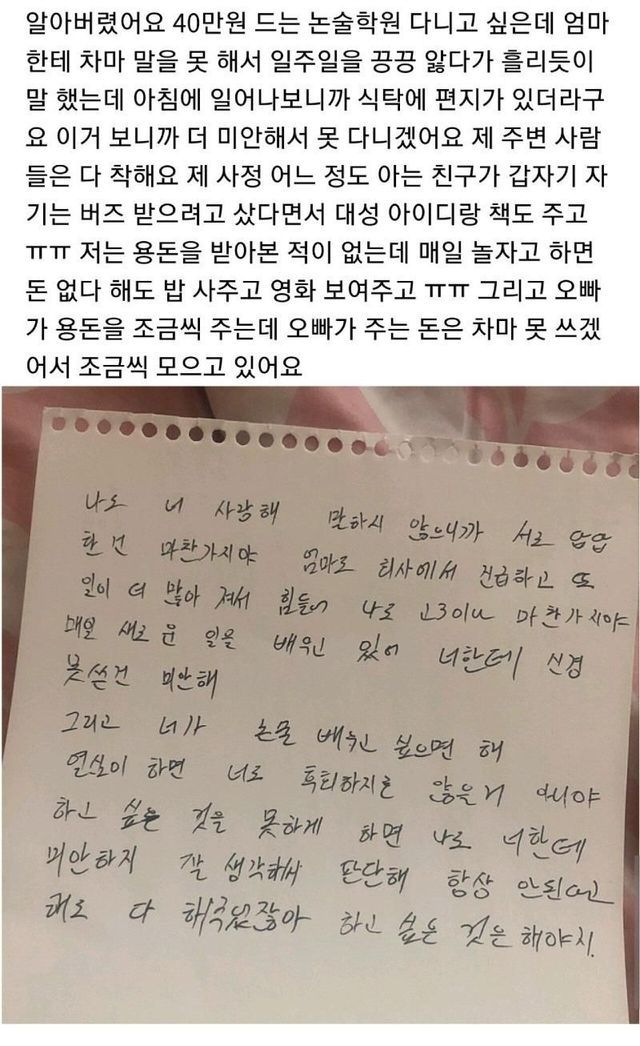 알아버렸어요 40만원 드는 논술학원 다니고 싶은데 엄마
한테 차마 말을 못 해서 일주일을 끙끙 앓다가 흘리듯이
말 했는데 아침에 일어나보니까 식탁에 편지가 있더라구
요 이거 보니까 더 미안해서 못 다니겠어요 제 주변 사람
들은 다 착해요 제 사정 어느 정도 아는 친구가 갑자기 자
기는 버즈 받으려고 샀다면서 대성 아이디랑 책도 주고
ㅠㅠ 저는 용돈을 받아본 적이 없는데 매일 놀자고 하면
돈 없다 해도 밥 사주고 영화 보여주고 ㅠㅠ 그리고 오빠
가 용돈을 조금씩 주는데 오빠가 주는 돈은 차마 못 쓰겠
어서 조금씩 모으고 있어요
나도 너 사랑해 말하지 않으니까 서로 답답
한 건 마찬가지야 엄마도 회사에서 진급하고 또
일이 더 많아 져서 힘들어 나도 고3이나 마찬가지야
매일 새로운 일을 배우고 있어 너한테 신경
못쓴건 미안해
그리고 너가 논술 배우고 싶으면 해
열심히 하면 너도 후회하지는 않을거 아니야
하고 싶은 것을 못하게 하면 나도 너한테
미안하지 잘 생각해서 판단해 항상 안된다고
해도 다 해왔잖아 하고 싶은 것은 해야지.